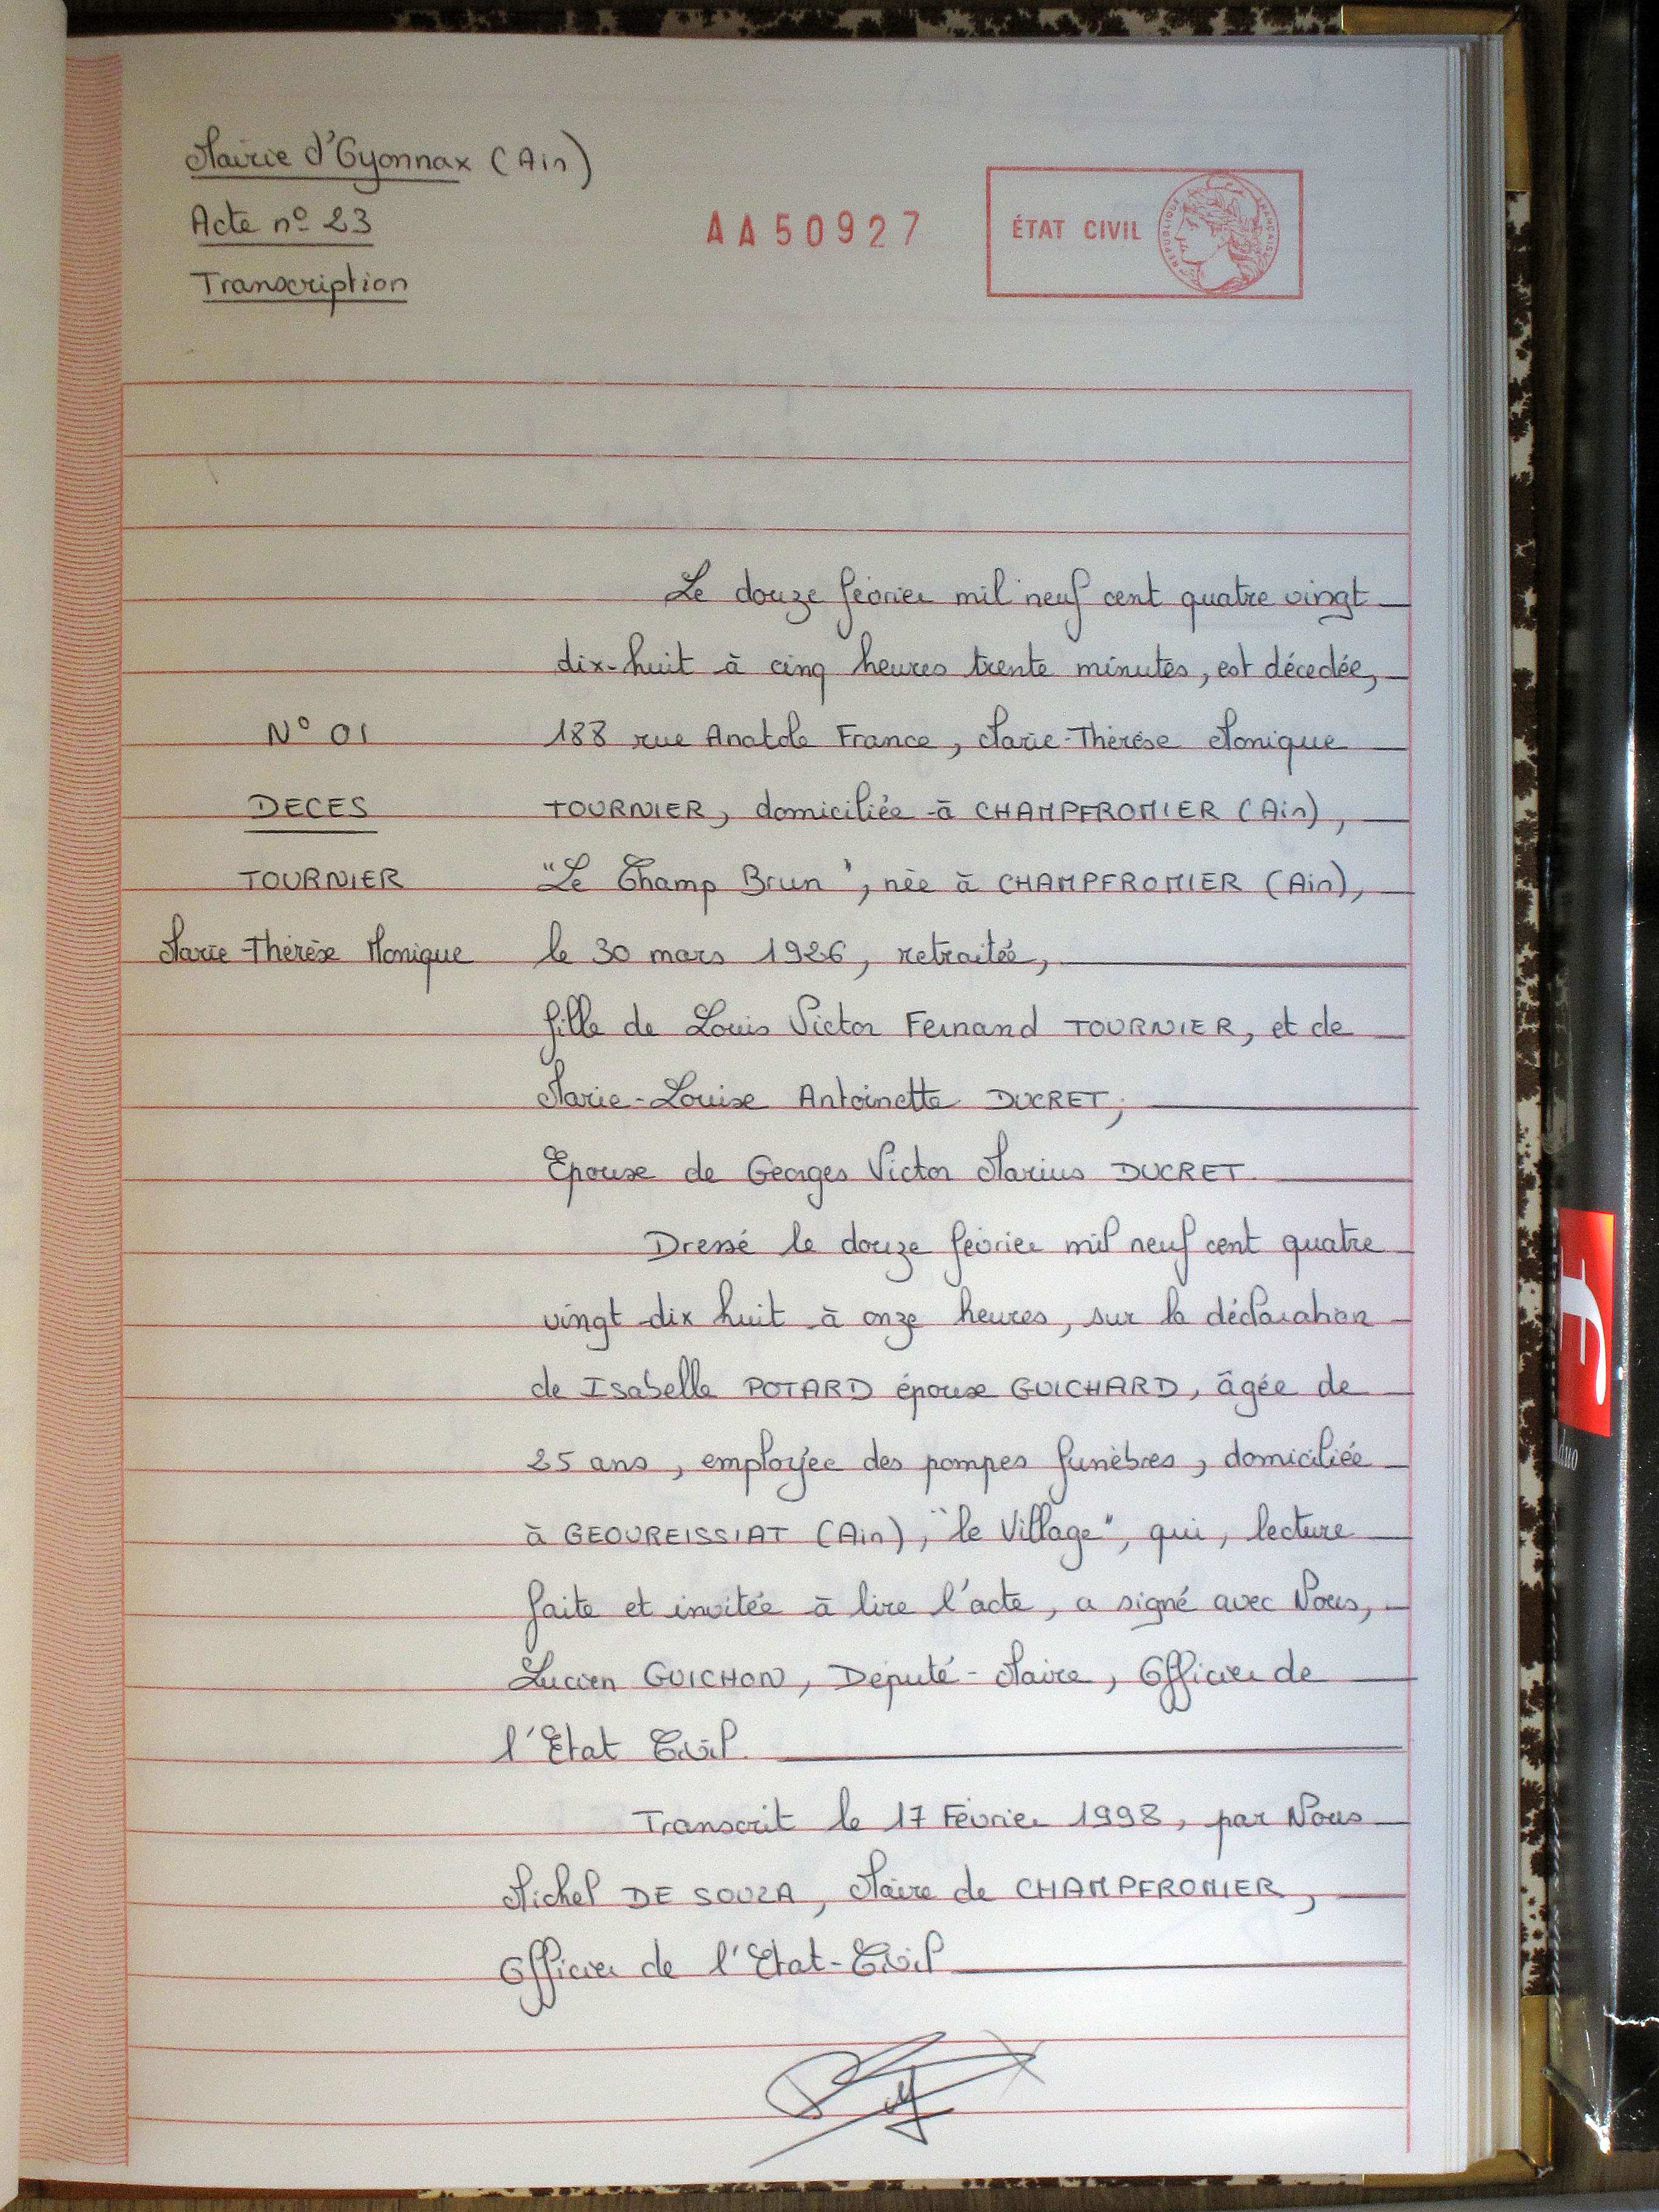 Mairie d'Oyonnax (Ain)
Acte nº 23
Transcription
AA50927
ÉTAT CIVIL
RÉPUBLIQUE FRANÇAISE
Le douze février mil neuf cent quatre vingt
dix-huit à cinq heures trente minutes, est décedée,
N° 01
188 rue Anatole France, Marie-Thérèse Monique
DECES
TOURNIER, domiciliée à CHAMPFROMIER (Ain),
TOURNIER
"Le Champ Brun", née à CHAMPFROMIER (Ain),
Marie-Thérèse Monique
le 30 mars 1926, retraitée,
fille de Louis Victor Fernand TOURNIER, et de
Marie-Louise Antoinette DUCRET;
Epouse de Georges Victor Marius DUCRET.
Dressé le douze février mil neuf cent quatre
vingt-dix huit à onze heures, sur la déclaration
de Isabelle POTARD épouse GUICHARD, âgée de
25 ans, employée des pompes funèbres, domiciliée
à GEOVREISSIAT (Ain), "le Village", qui, lecture
faite et invitée à lire l'acte, a signé avec Nous,
Lucien GUICHON, Député-Maire, Officier de
l'Etat Civil.
Transcrit le 17 Février 1998, par Nous
Michel DE SOUZA, Maire de CHAMPFROMIER,
Officier de l'Etat-Civil
duo